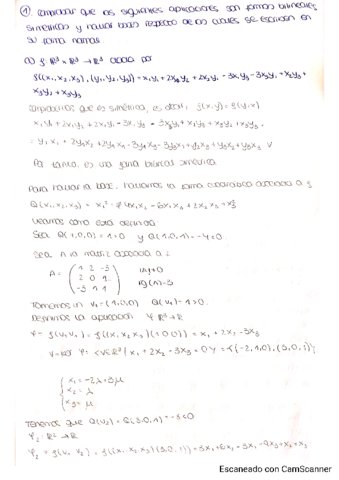 ① Comprobar que las siguientes aplicaciones son formas bilineales
simétricas y hallar bases respecto de las cuales se escriben en
su forma normal
a) f: R³ × R³ → R dada por
f((x₁, x₂, x₃), (y₁, y₂, y₃)) = x₁y₁ + 2x₁y₂ + 2x₂y₁ - 3x₁y₃ - 3x₃y₁ + x₂y₃ +
x₃y₂ + x₃y₃
Comprobamos que es simétrica, es decir, f(x,y) = f(y,x)
x₁y₁ + 2x₁y₂ + 2x₂y₁ - 3x₁y₃ - 3x₃y₁ + x₂y₃ + x₃y₂ + x₃y₃ =
Por tanto, es una forma bilineal simétrica
Para hallar la base, hallamos la forma cuadrática asociada a f
Q(x₁, x₂, x₃) = x₁² + 4x₁x₂ - 6x₁x₃ + 2x₂x₃ + x₃²
Veamos como está definida
Sea Q(1,0,0) = 1 > 0 y Q(1,0,1) = -4 < 0
Sea A la matriz asociada a f
A = ( 1 2 -3
2 0 1
-3 1 1 )
|A| ≠ 0
rg(A) = 3
Tomemos un v₁ = (1,0,0) Q(v₁) = 1 > 0
Definimos la aplicación φ: R³ → R
φ = f(v, v₁) = f((x₁, x₂, x₃)(1,0,0)) = x₁ + 2x₂ - 3x₃
x₁ + 2x₂ - 3x₃ = 0 = {(-2,1,0), (3,0,1)}
{ x₁ = -2λ + 3μ
x₂ = λ
x₃ = μ
Tenemos que Q(v₂) = Q(3,0,1)
φ₂: R³ → R
φ₂ = f(v, v₂) = f((x₁, x₂, x₃)(3,0,1)) = 3x₁ + 6x₂ - 3x₁ - 9x₃ + x₂ + x₃
Escaneado con CamScanner